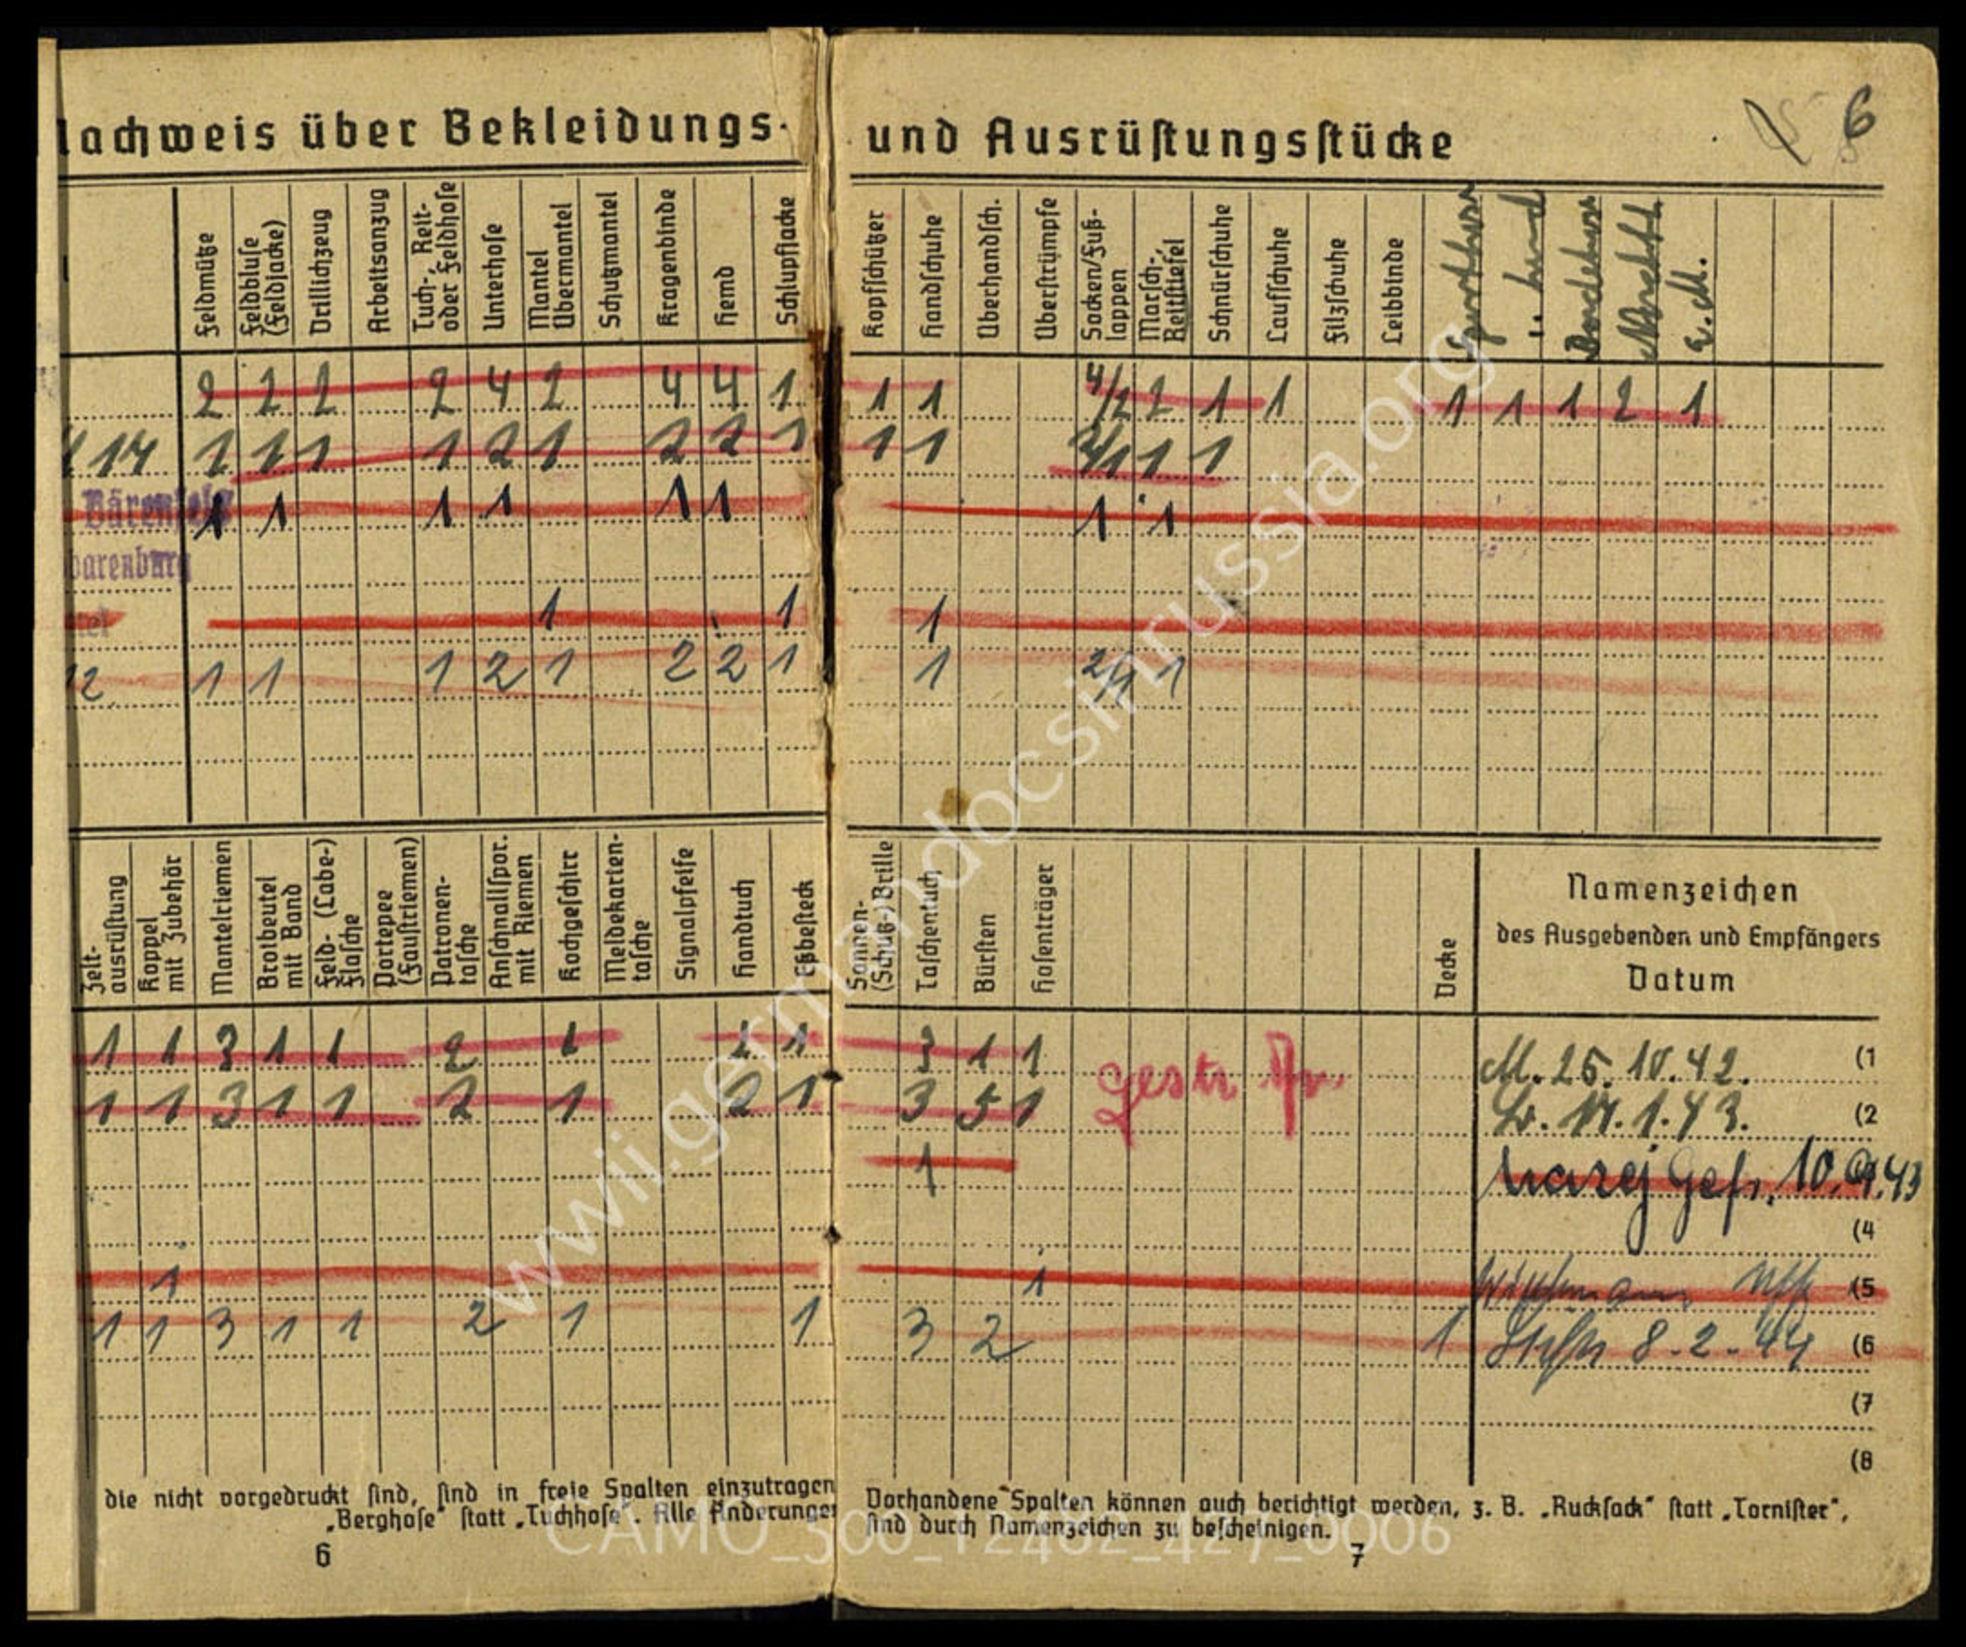 Nachweis über Bekleidungs- und Ausrüstungsstücke
6
Feldmütze
Feldbluse (Feldjacke)
Drillichzeug
Arbeitsanzug
Tuch-, Reit- oder Feldhose
Unterhose
Mantel Übermantel
Schutzmantel
Kragenbinde
Hemd
Schlupfjacke
Kopfschützer
Handschuhe
Überhandsch.
Überstrümpfe
Socken/Fußlappen
Marsch-, Reitstiefel
Schnürschuhe
Laufschuhe
Filzschuhe
Leibbinde
Sporthose
" hemd
Badehose
E.M.
2 2 2 2 4 2 4 4 1 1 1 4/2 2 1 1 1 1 1 2 1
14 1 1 1 1 2 1 2 2 1 1 1 2/1 1 1
Bärenfels 1 1 1 1 1 1 1 1
1 1 1
12 1 1 1 2 1 2 2 1 1 2/1 1
Zelt-ausrüstung
Koppel mit Zubehör
Mantelriemen
Brotbeutel mit Band
Feld- (Labe-) Flasche
Portepee (Faustriemen)
Patronen-tasche
Anschnallspor. mit Riemen
Kochgeschirr
Meldekarten-tasche
Signalpfeife
Handtuch
Eßbesteck
Sonnen-(Schutz-)Brille
Taschentuch
Bürsten
Hosenträger
Decke
Namenzeichen
des Ausgebenden und Empfängers
Datum
1 1 3 1 1 2 1 2 1 3 1 1 M. 25.10.42. (1
1 1 3 1 1 2 1 2 1 3 5 1 gestr. 17.1.43. (2
1 Gefr. 10.9.43
(4
1 1 Uffz (5
1 1 3 1 1 2 1 1 3 2 1 8-2-44 (6
(7
(8
die nicht vorgedruckt sind, sind in freie Spalten einzutragen
„Berghose" statt „Tuchhose". Alle Änderungen
Vorhandene Spalten können auch berichtigt werden, z. B. „Rucksack" statt „Tornister",
sind durch Namenzeichen zu bescheinigen.
6
7
wwii.germandocsinrussia.org
CAMO_500_12482_427_0006